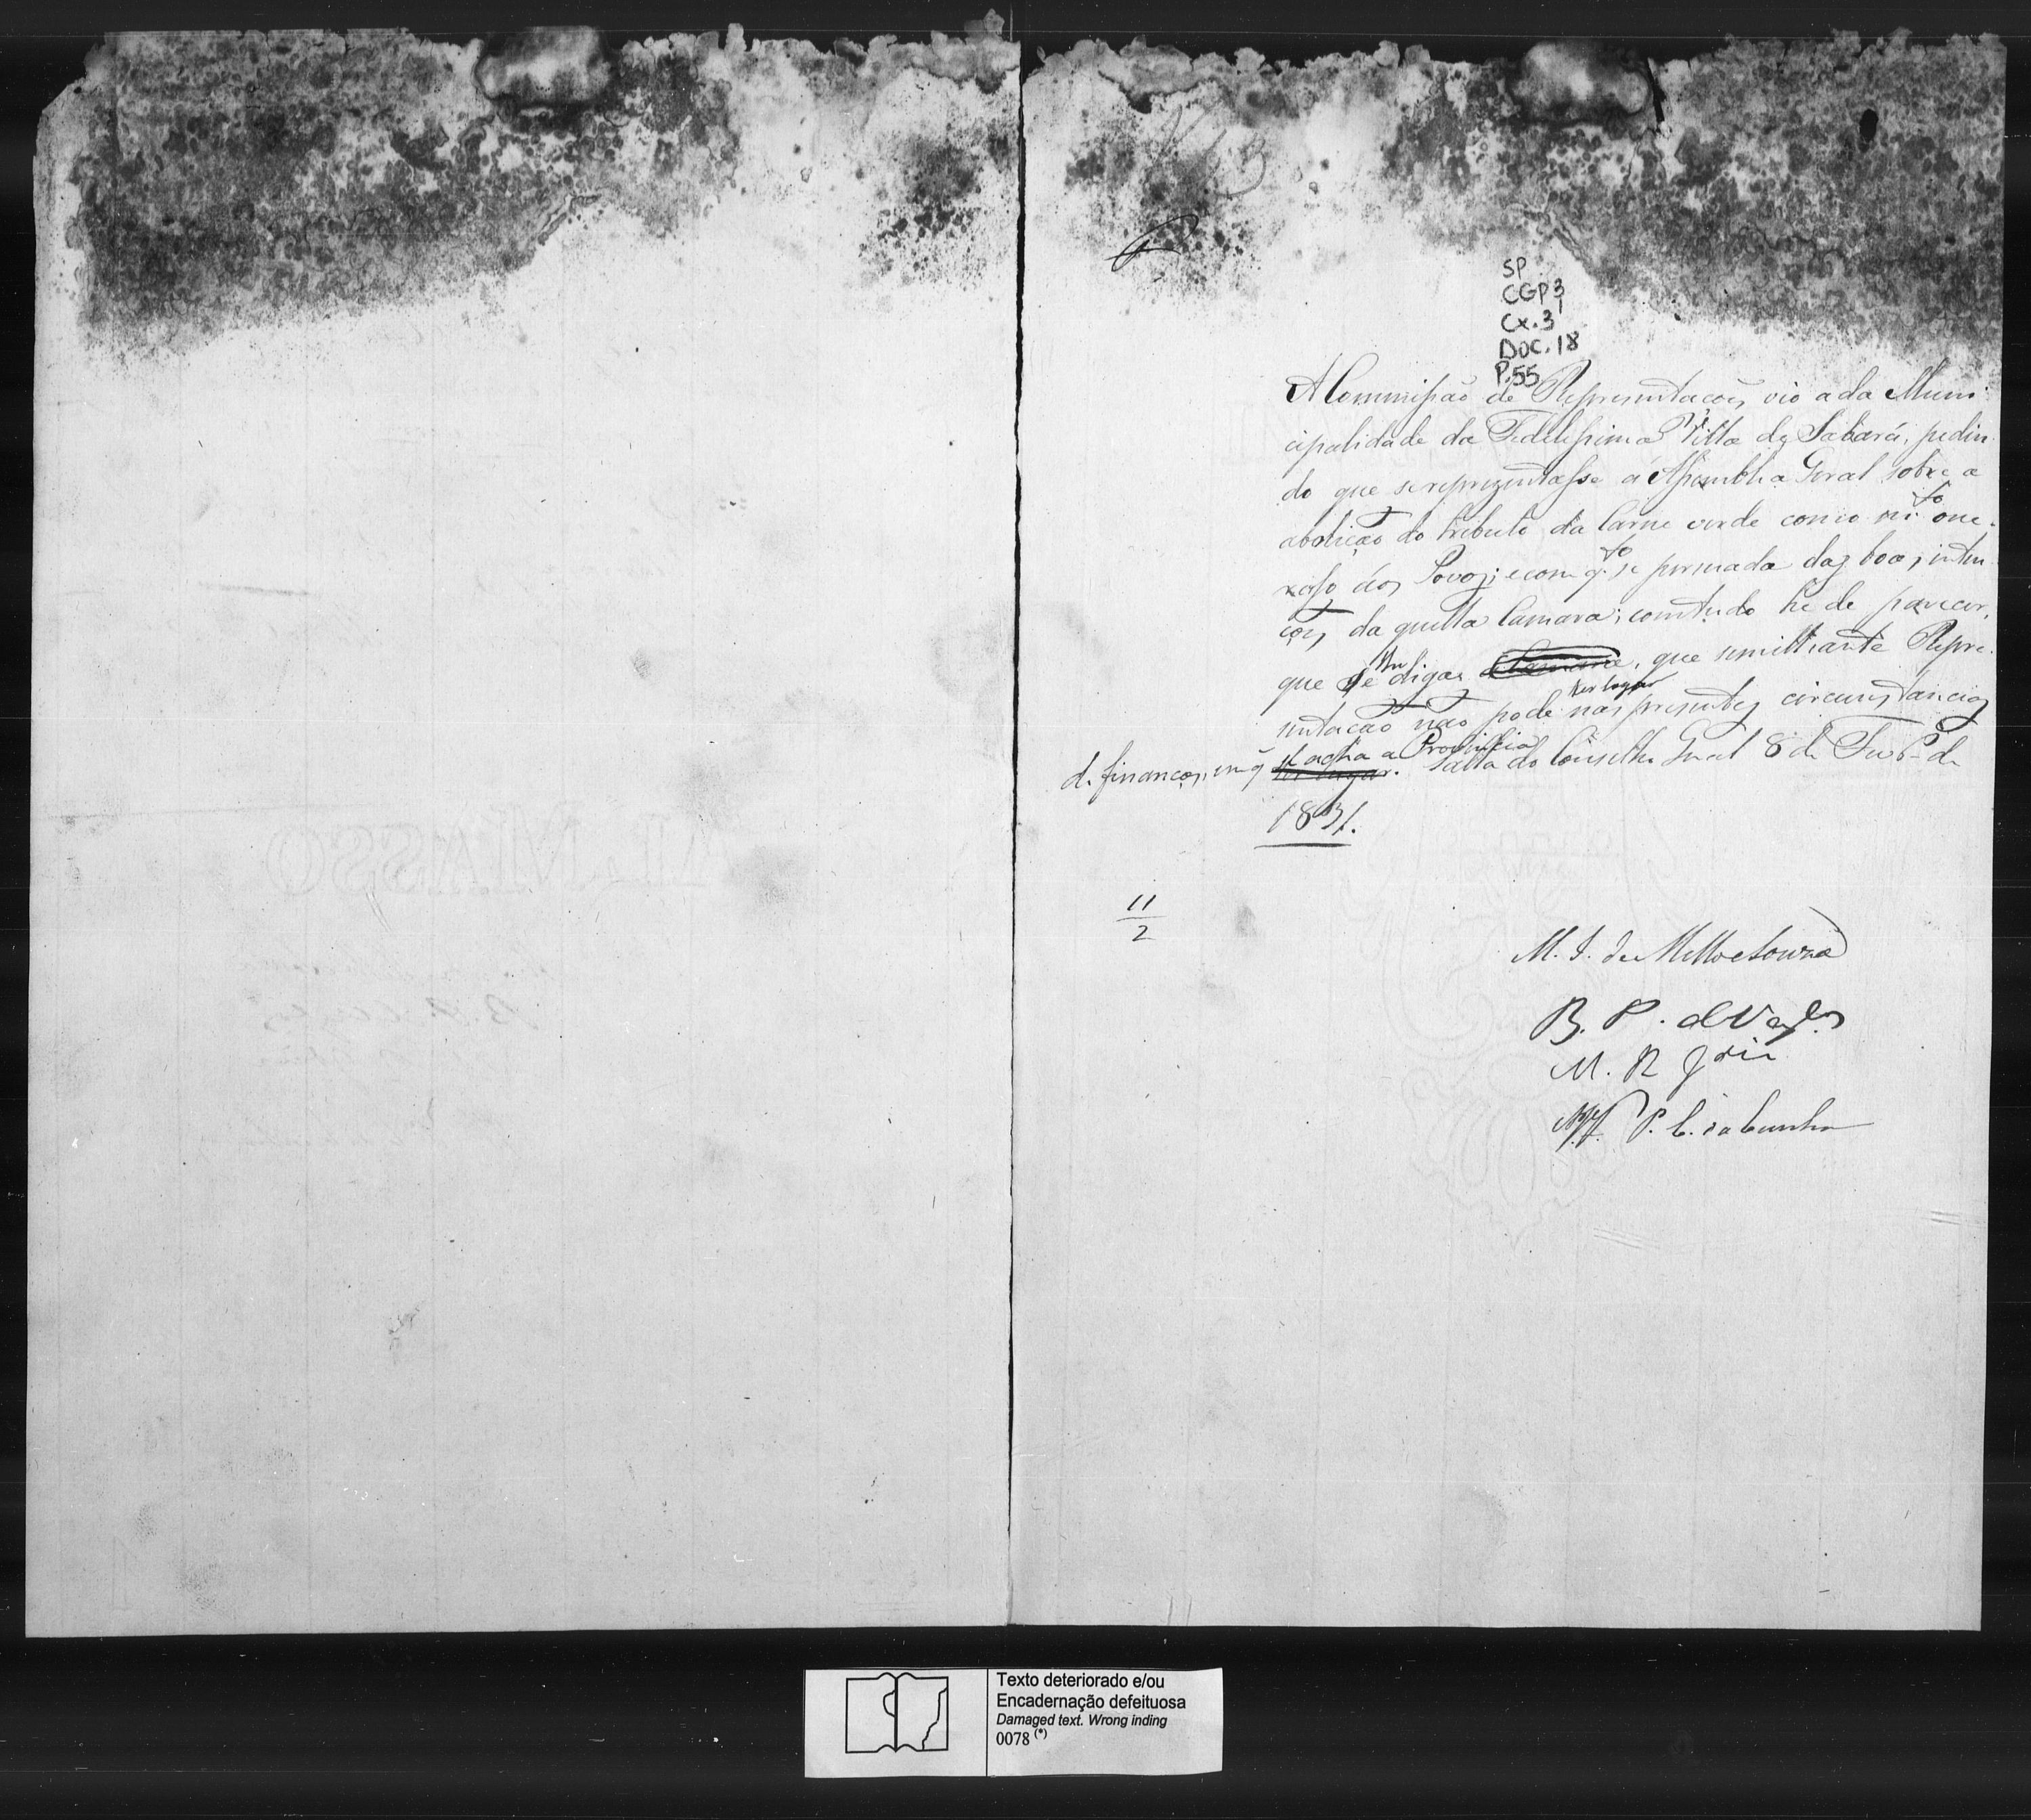 SP
CGP3
Cx.31
Doc.18
P.55
A Commissaõ de Representacoẽs vio a da Muni
cipalidade da Fedelissima Villa de Sabará, pedin
do que se reprezentasse á Assemblea Geral sobre a
abolicaõ do tributo da Carne verde como one
roso áos Povos; e com q.to se persuada das boas inten
coẽs da quella Camara; comtudo he de parecer,
que se lhe diga, que similhante Repre
sentacaõ naõ pode ter lugar nas presentes circunstancias
de financas, em q̃ se acha a Provincia. Salla do Conselho Geral 8 de Fevr.o de
1831.
11
2
M. I. de Mello e Souza
B. P. de Vas.los
M. R
P. C. da Cunha
AL MASSO
Texto deteriorado e/ou
Encadernação defeituosa
Damaged text. Wrong inding
0078 (*)